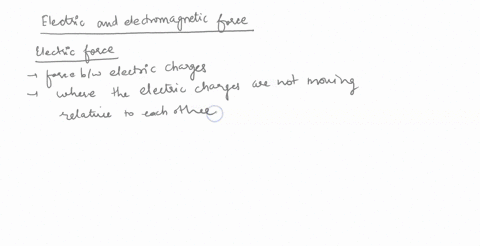 Electric and electromagnetic force
Electric force
→ force b/w electric charges
→ where the electric charges are not moving
relative to each other